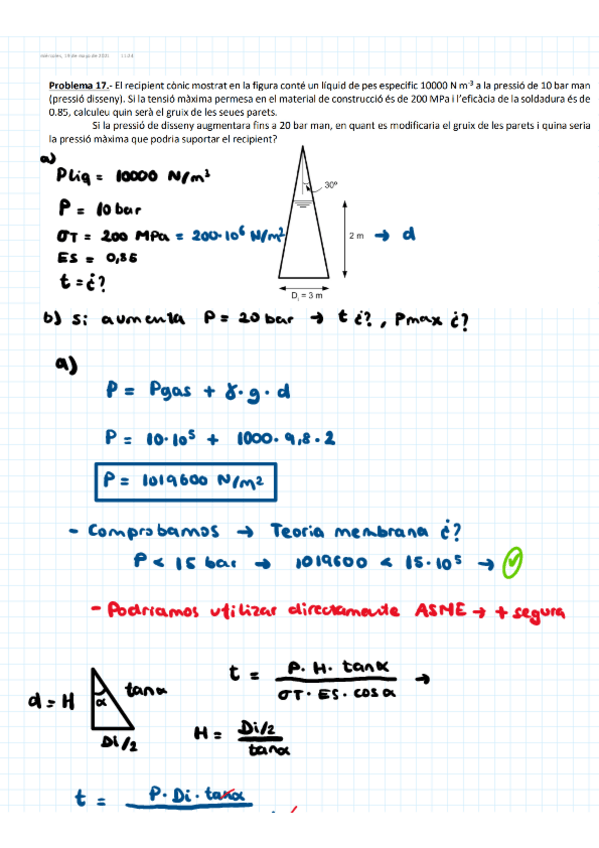 miércoles, 19 de mayo de 2021 11:24
Problema 17.- El recipient cònic mostrat en la figura conté un líquid de pes especific 10000 N m-3 a la pressió de 10 bar man
(pressió disseny). Si la tensió màxima permesa en el material de construcció és de 200 MPa i l'eficàcia de la soldadura és de
0.85, calculeu quin serà el gruix de les seues parets.
Si la pressió de disseny augmentara fins a 20 bar man, en quant es modificaria el gruix de les parets i quina seria
la pressió màxima que podria suportar el recipient?
a)
Pliq = 10000 N/m³
P = 10 bar
σT = 200 MPa = 200·10⁶ N/m²
ES = 0,85
t = ¿?
30º
2 m → d
Di = 3 m
b) Si aumenta P = 20 bar → t ¿?, Pmax ¿?
a)
P = Pgas + γ·g·d
P = 10·10⁵ + 1000·9,8·2
P = 1019600 N/m²
- Comprobamos → Teoria membrana ¿?
P < 15 bar → 1019600 < 15·10⁵ → ✓
- Podríamos utilizar directamente ASME → + segura
d = H
α
tanα
Di/2
t = P·H·tanα / σT·ES·cosα →
H = Di/2 / tanα
t = P·Di·tanα